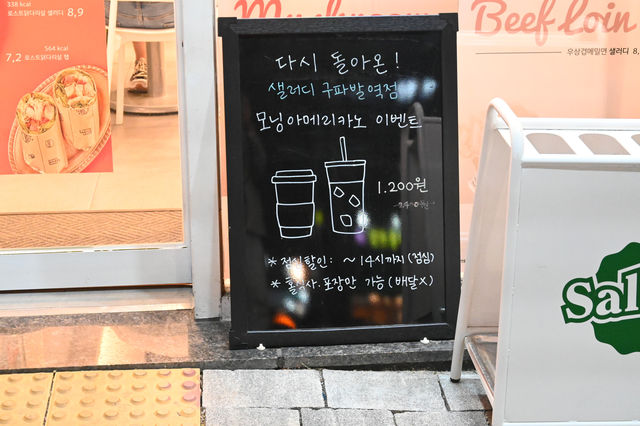 338 kcal
로스트닭다리살 샐러디 8,9
564 kcal
7,2 로스트닭다리살 랩
Mushroom
Beef loin
우삼겹메밀면 샐러디 8,
다시 돌아온!
샐러디 구파발역점
모닝아메리카노 이벤트
1.200원
* 점심할인: ~ 14시까지 (점심)
* 홀식사.포장만 가능 (배달X)
Sal